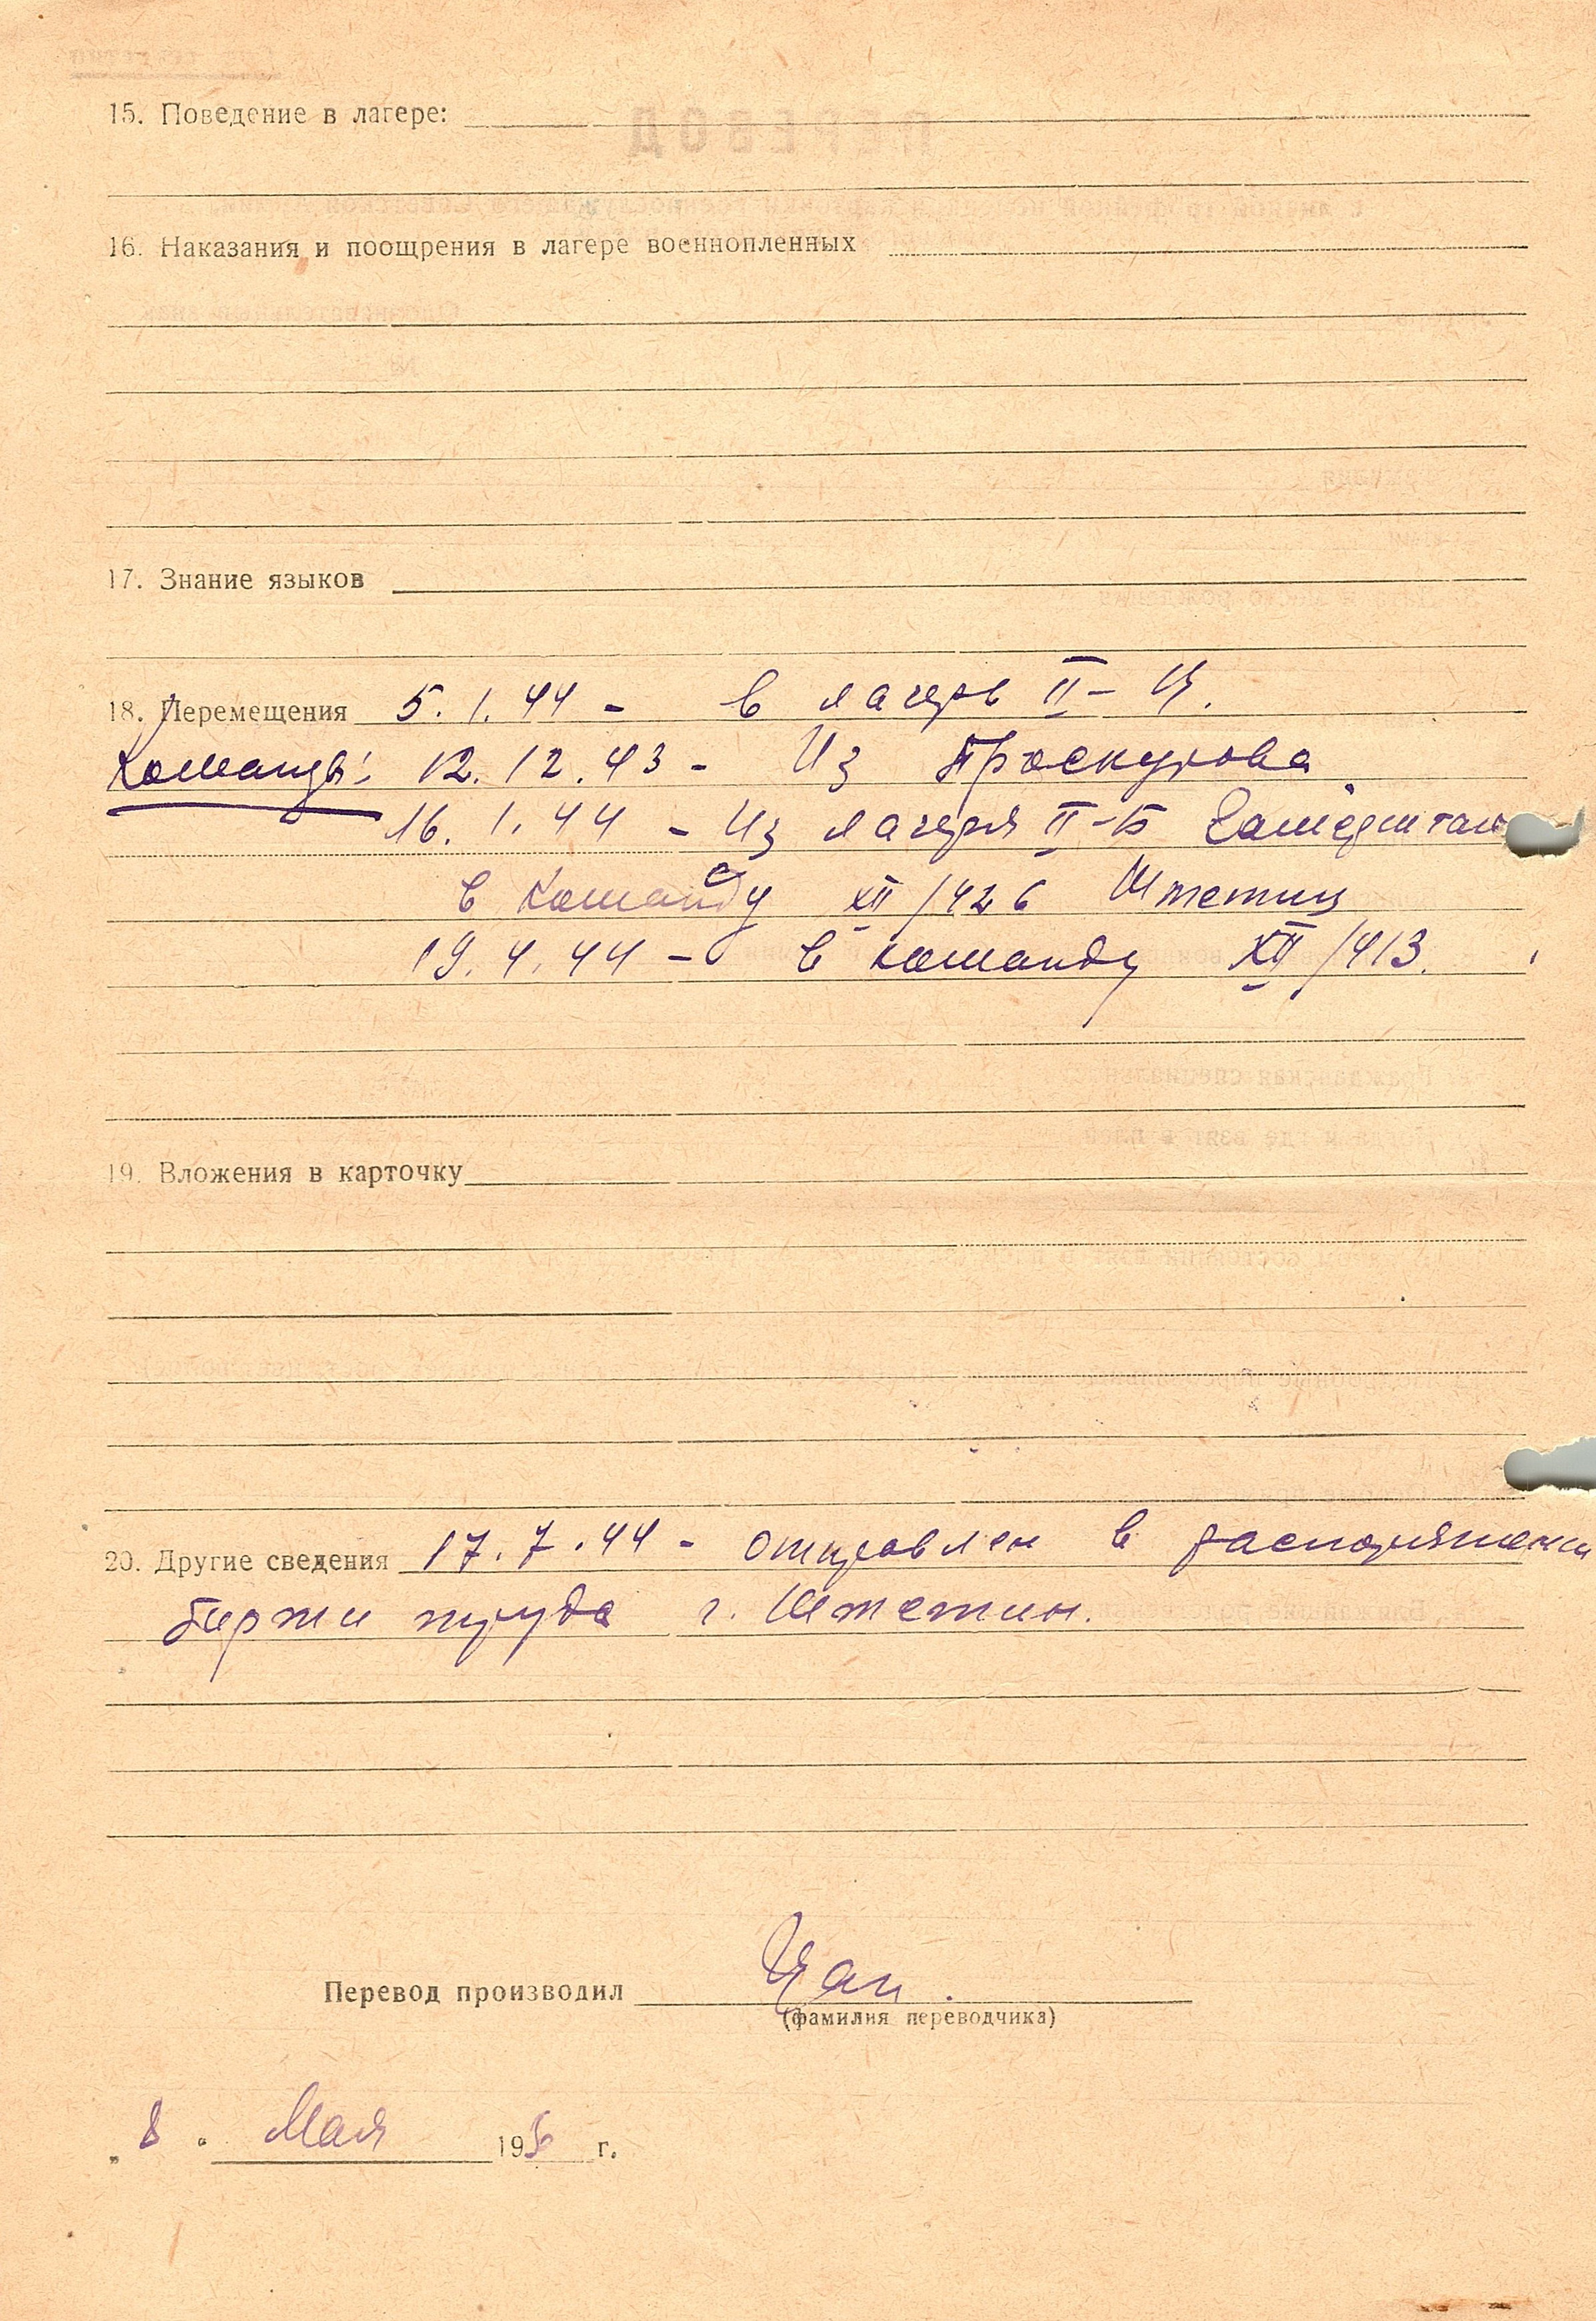 15. Поведение в лагере:
16. Наказания и поощрения в лагере военнопленных
17. Знание языков
18. Перемещения 5.1.44 - в лагерь II-Ц.
Команды: 12.12.43 - Из Проскурова
16.1.44 - Из лагеря II-Б
в команду XII/426 Штетин
19.4.44 - в команду XII/413.
19. Вложения в карточку
20. Другие сведения 17.7.44 - отправлен в распоряжени
биржи труда г. Штетин.
Перевод производил
(фамилия переводчика)
„8" Мая 195 г.